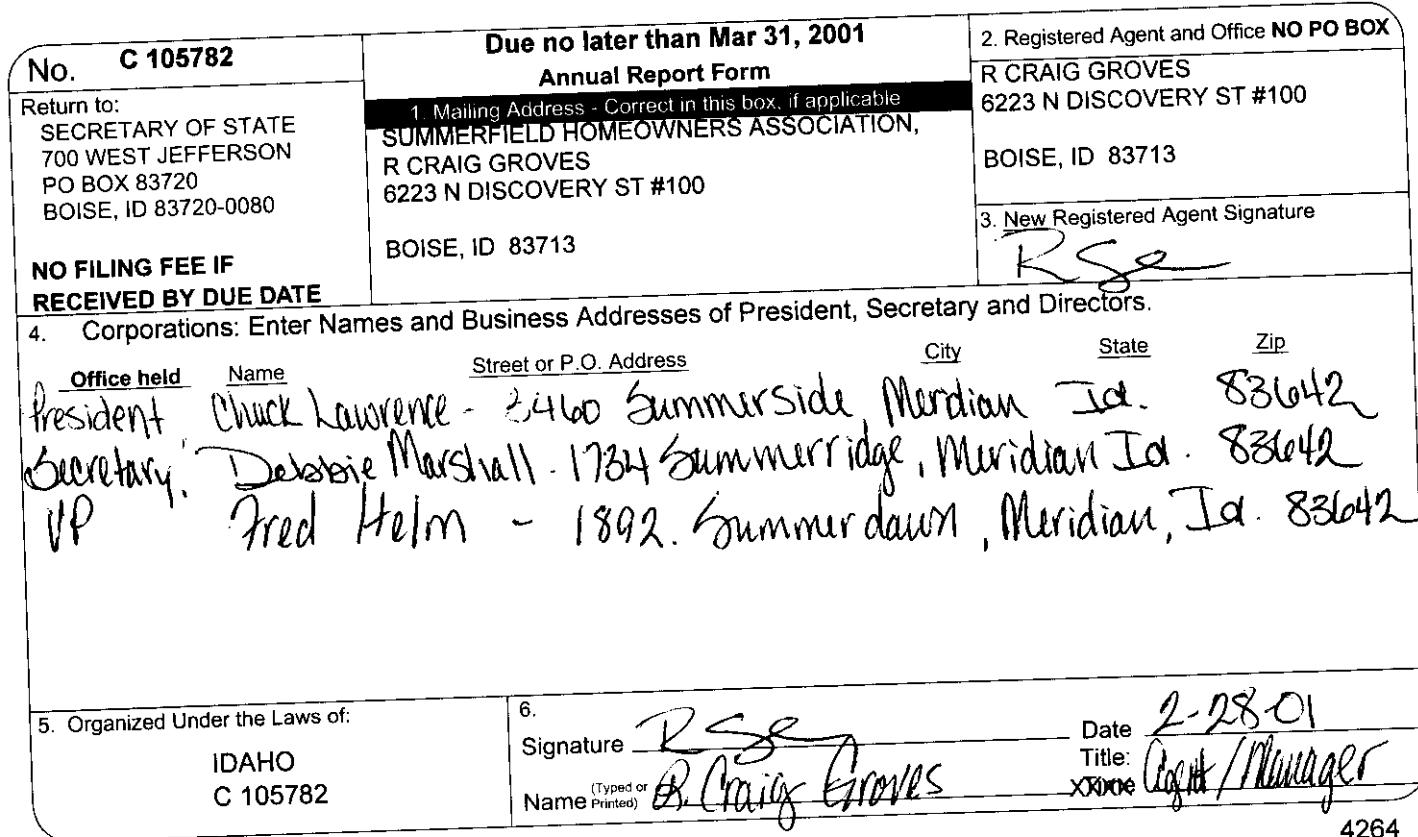 No. C 105782
Return to:
SECRETARY OF STATE
700 WEST JEFFERSON
PO BOX 83720
BOISE, ID 83720-0080
NO FILING FEE IF
RECEIVED BY DUE DATE
Due no later than Mar 31, 2001
Annual Report Form
1. Mailing Address - Correct in this box, if applicable
SUMMERFIELD HOMEOWNERS ASSOCIATION,
R CRAIG GROVES
6223 N DISCOVERY ST #100
BOISE, ID 83713
2. Registered Agent and Office NO PO BOX
R CRAIG GROVES
6223 N DISCOVERY ST #100
BOISE, ID 83713
3. New Registered Agent Signature
4. Corporations: Enter Names and Business Addresses of President, Secretary and Directors.
Office held Name Street or P.O. Address City State Zip
President Chuck Lawrence - Summerside, Merdian Id. 83642
Secretary, Debbie Marshall - 1734 Summerridge, Meridian Id. 83642
VP Fred Helm - 1892. Summerdawn, Meridian, Id. 83642
5. Organized Under the Laws of:
IDAHO
C 105782
6.
Signature
Date 2-28-01
Name (Typed or Printed) R. Craig Groves
Title: Agent / Manager
4264